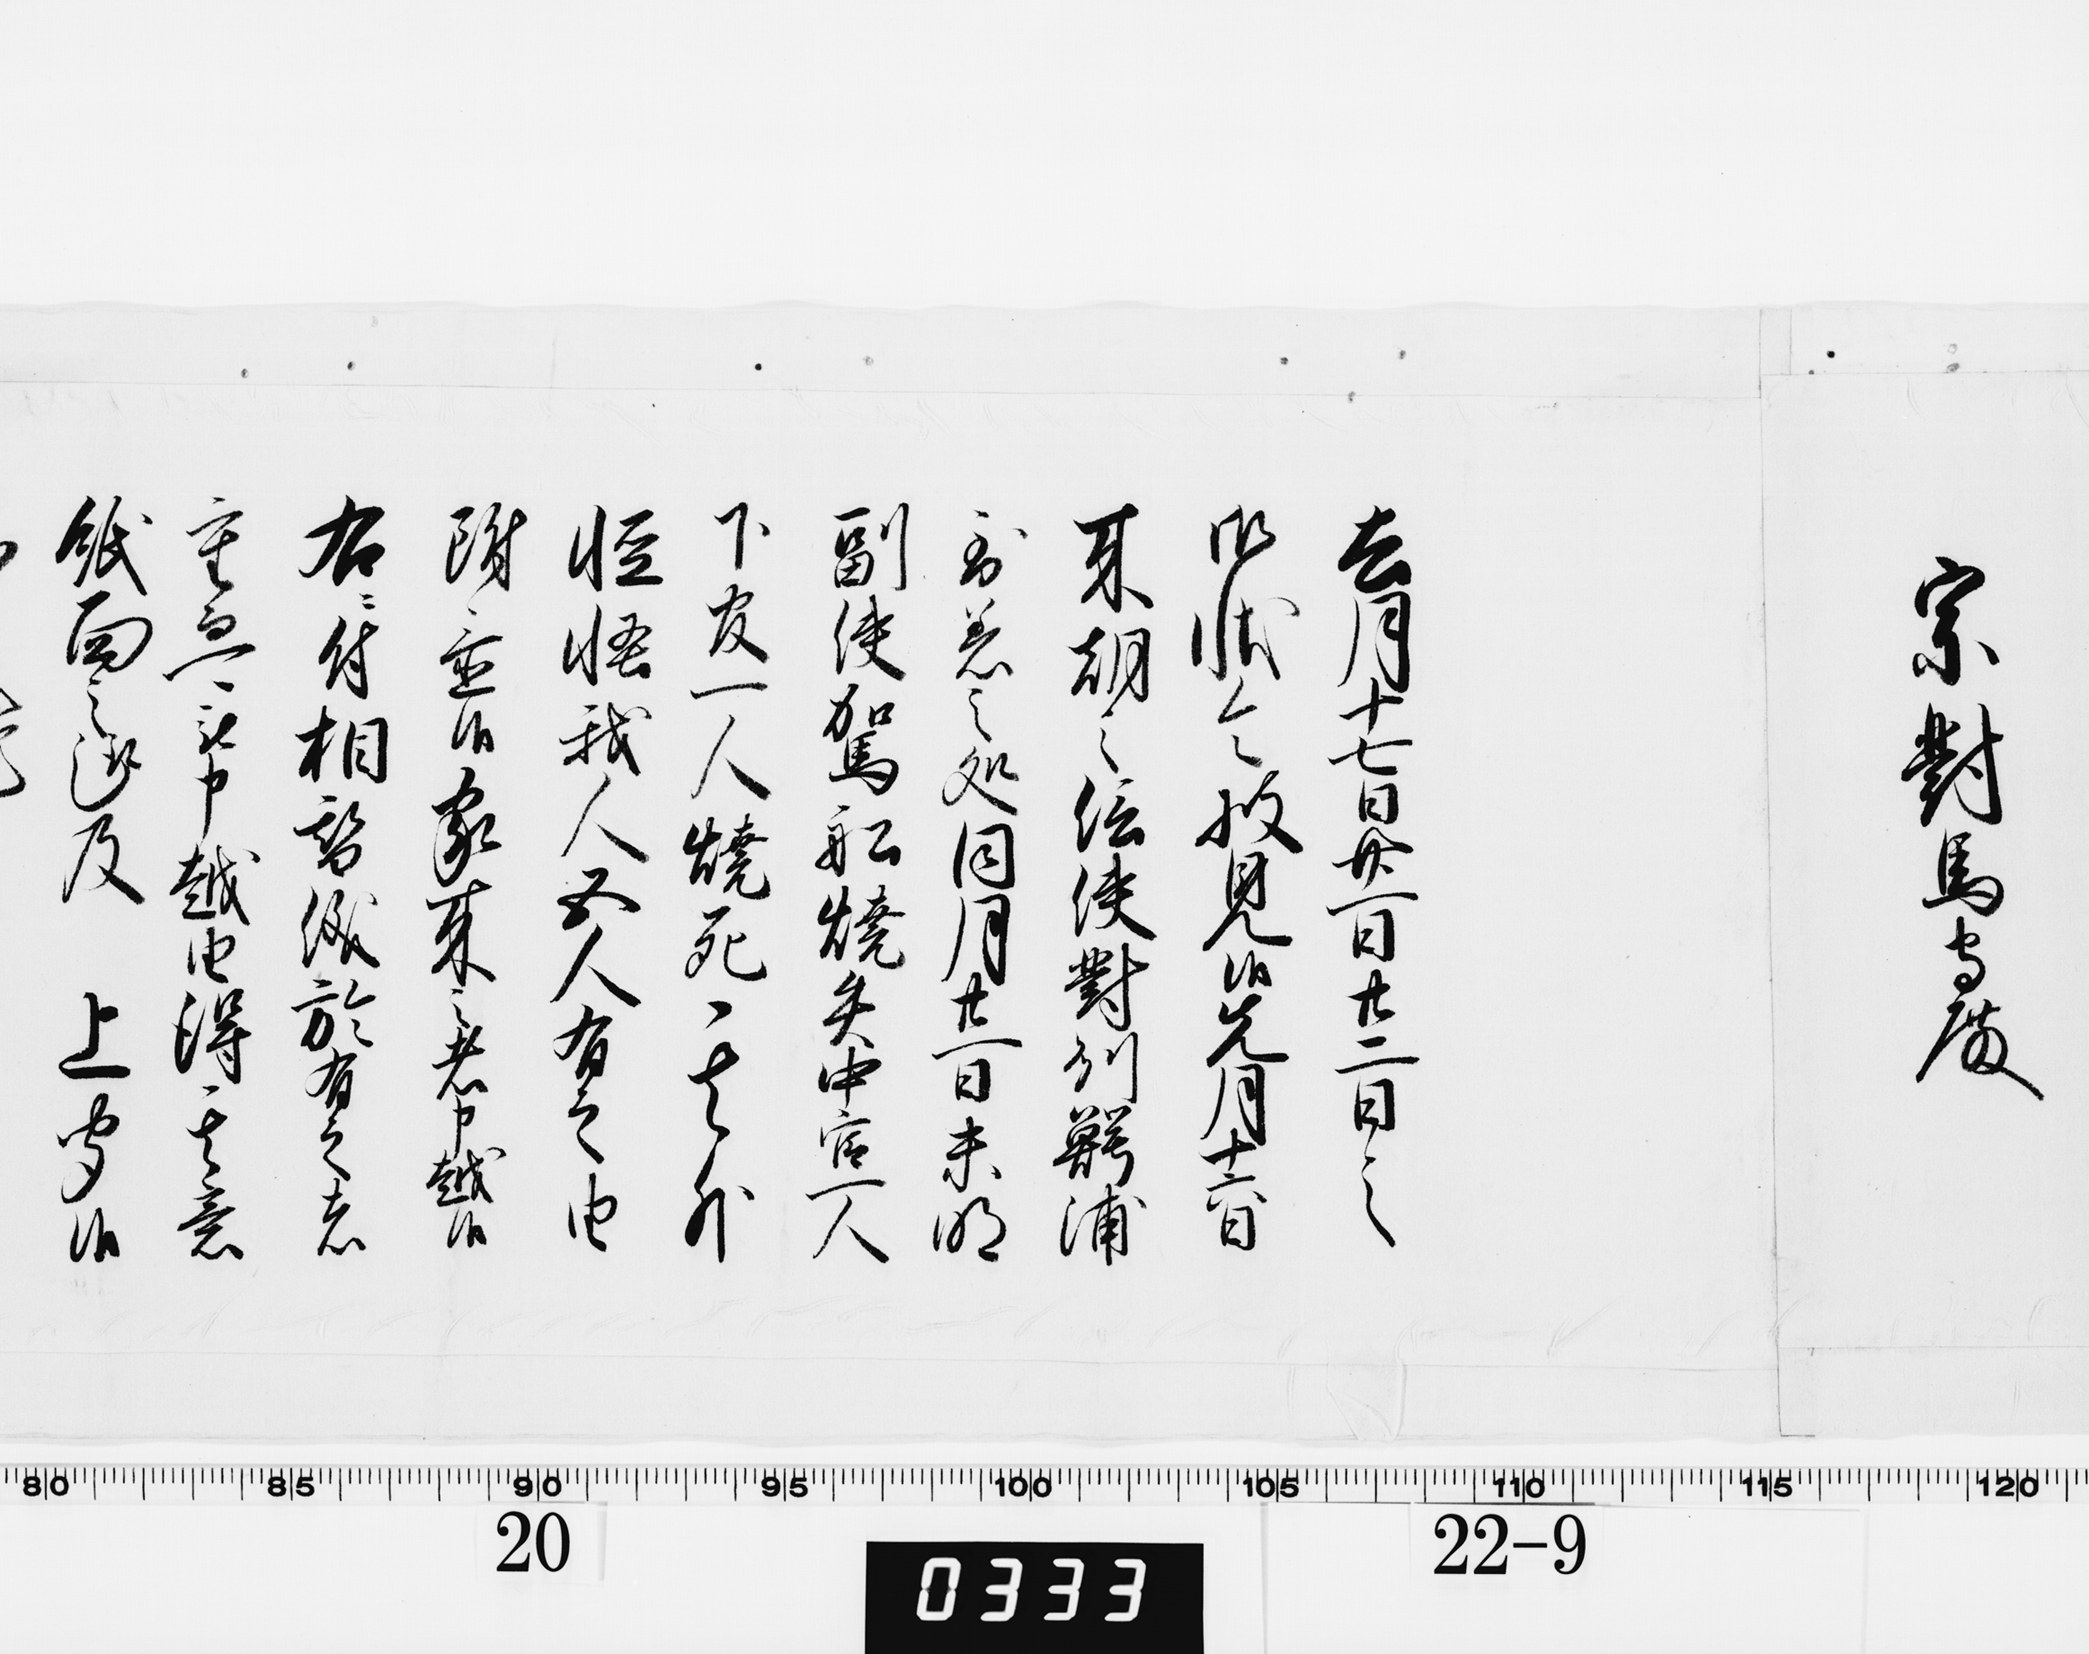 宗對馬守殿
去月十七日廿一日廿二日之
御状令披見候先月十六日
来朝之信使對州鰐浦
到着之処同月廿一日未明
副使駕舩燒失中官一人
下官一人燒死、其外
怪我人五人有之由
附之並候家来之者申越候
右ニ付相
於有之者
重而可申越由得其意
紙面之趣及 上聞候
80 85 90 95 100 105 110 115 120
20
22-9
0333